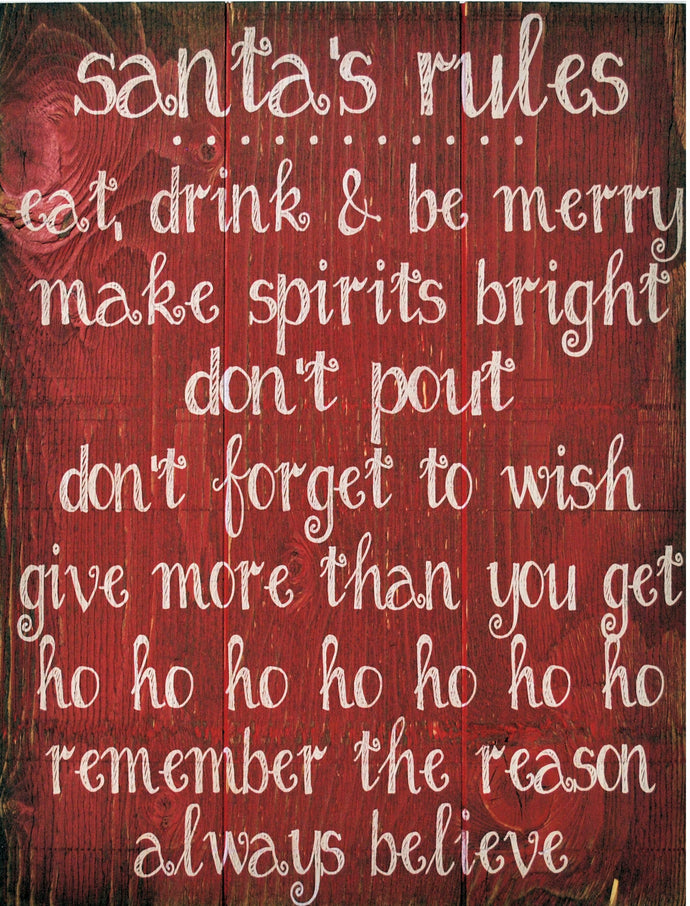 santa's rules
eat, drink & be merry
make spirits bright
don't pout
don't forget to wish
give more than you get
ho ho ho ho ho ho ho
remember the reason
always believe